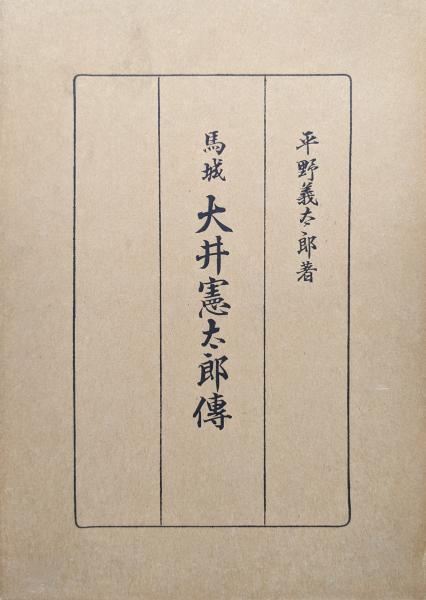 平野義太郎著
馬城 大井憲太郎傳